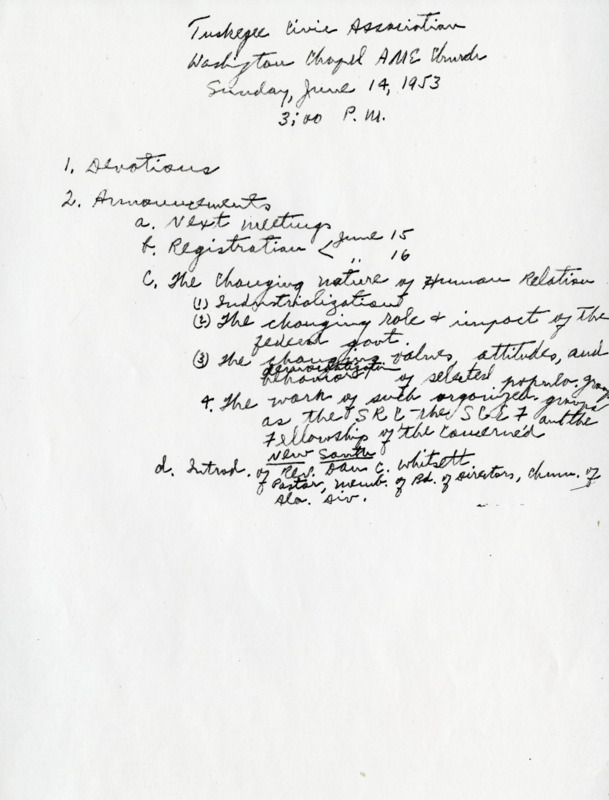 Tuskegee Civic Association
Washington Chapel AME Church
Sunday, June 14, 1953
3:00 P.M.
1. Devotions
2. Announcements
a. Next meetings
b. Registration < June 15
" 16
c. The Changing nature of Human Relation
(1) Industrialization
(2) The changing role & impact of the
federal govt.
(3) The changing values, attitudes, and
behavior of selected popula. groups
4. The work of such organized groups
as the SRC - the SCEF and the
Fellowship of the Concerned
New South
d. Introd. of Rev. Dan C. Whitsett
of Pastor, memb. of Bd. of Directors, Chmn. of
Ala. Div.